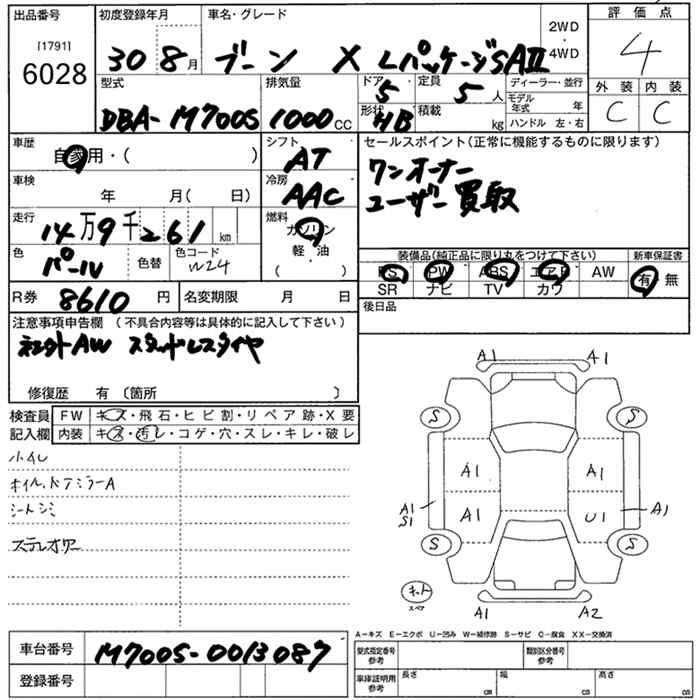 出品番号 初度登録年月 車名・グレード 2WD・4WD 評価点
[1791]
6028 30 8月 ブーン X LパッケージSAⅢ 4
型式 排気量 ドア 5 定員 5人 ディーラー・並行 外装 内装
モデル年式 年
DBA-M700S 1000cc 形状 HB 積載 kg ハンドル 左・右 C C
車歴 自家用・( ) シフト AT セールスポイント(正常に機能するものに限ります)
車検 年 月( 日) 冷房 AAC ワンオーナー
ユーザー買取
走行 14万9千261km 燃料 ガソリン・軽・油 ( )
色 パール 色替 色コード W24
装備品(純正品に限り丸をつけて下さい) 新車保証書
PS PW ABS エアB AW 有・無
SR ナビ TV カワ
R券 8610円 名変期限 月 日 後日品
注意事項申告欄 (不具合内容等は具体的に記入して下さい)
社外AW スタッドレスタイヤ
修復歴 有 〔箇所 〕
検査員記入欄 FW キズ・飛石・ヒビ割・リペア跡・X要
内装 キズ・汚レ・コゲ・穴・スレ・キレ・破レ
シートシミ
A1 A1
S S
A1 A1
A1 S1 A1 U1 A1
S S
スペア
A1 A2
A-キズ E-エクボ U-凹み W-補修跡 S-サビ C-腐食 XX-交換済
車台番号 M700S-0013087
型式指定番号 参考 類別区分番号 参考
登録番号
車庫証明用 参考 長さ cm 幅 cm 高さ cm